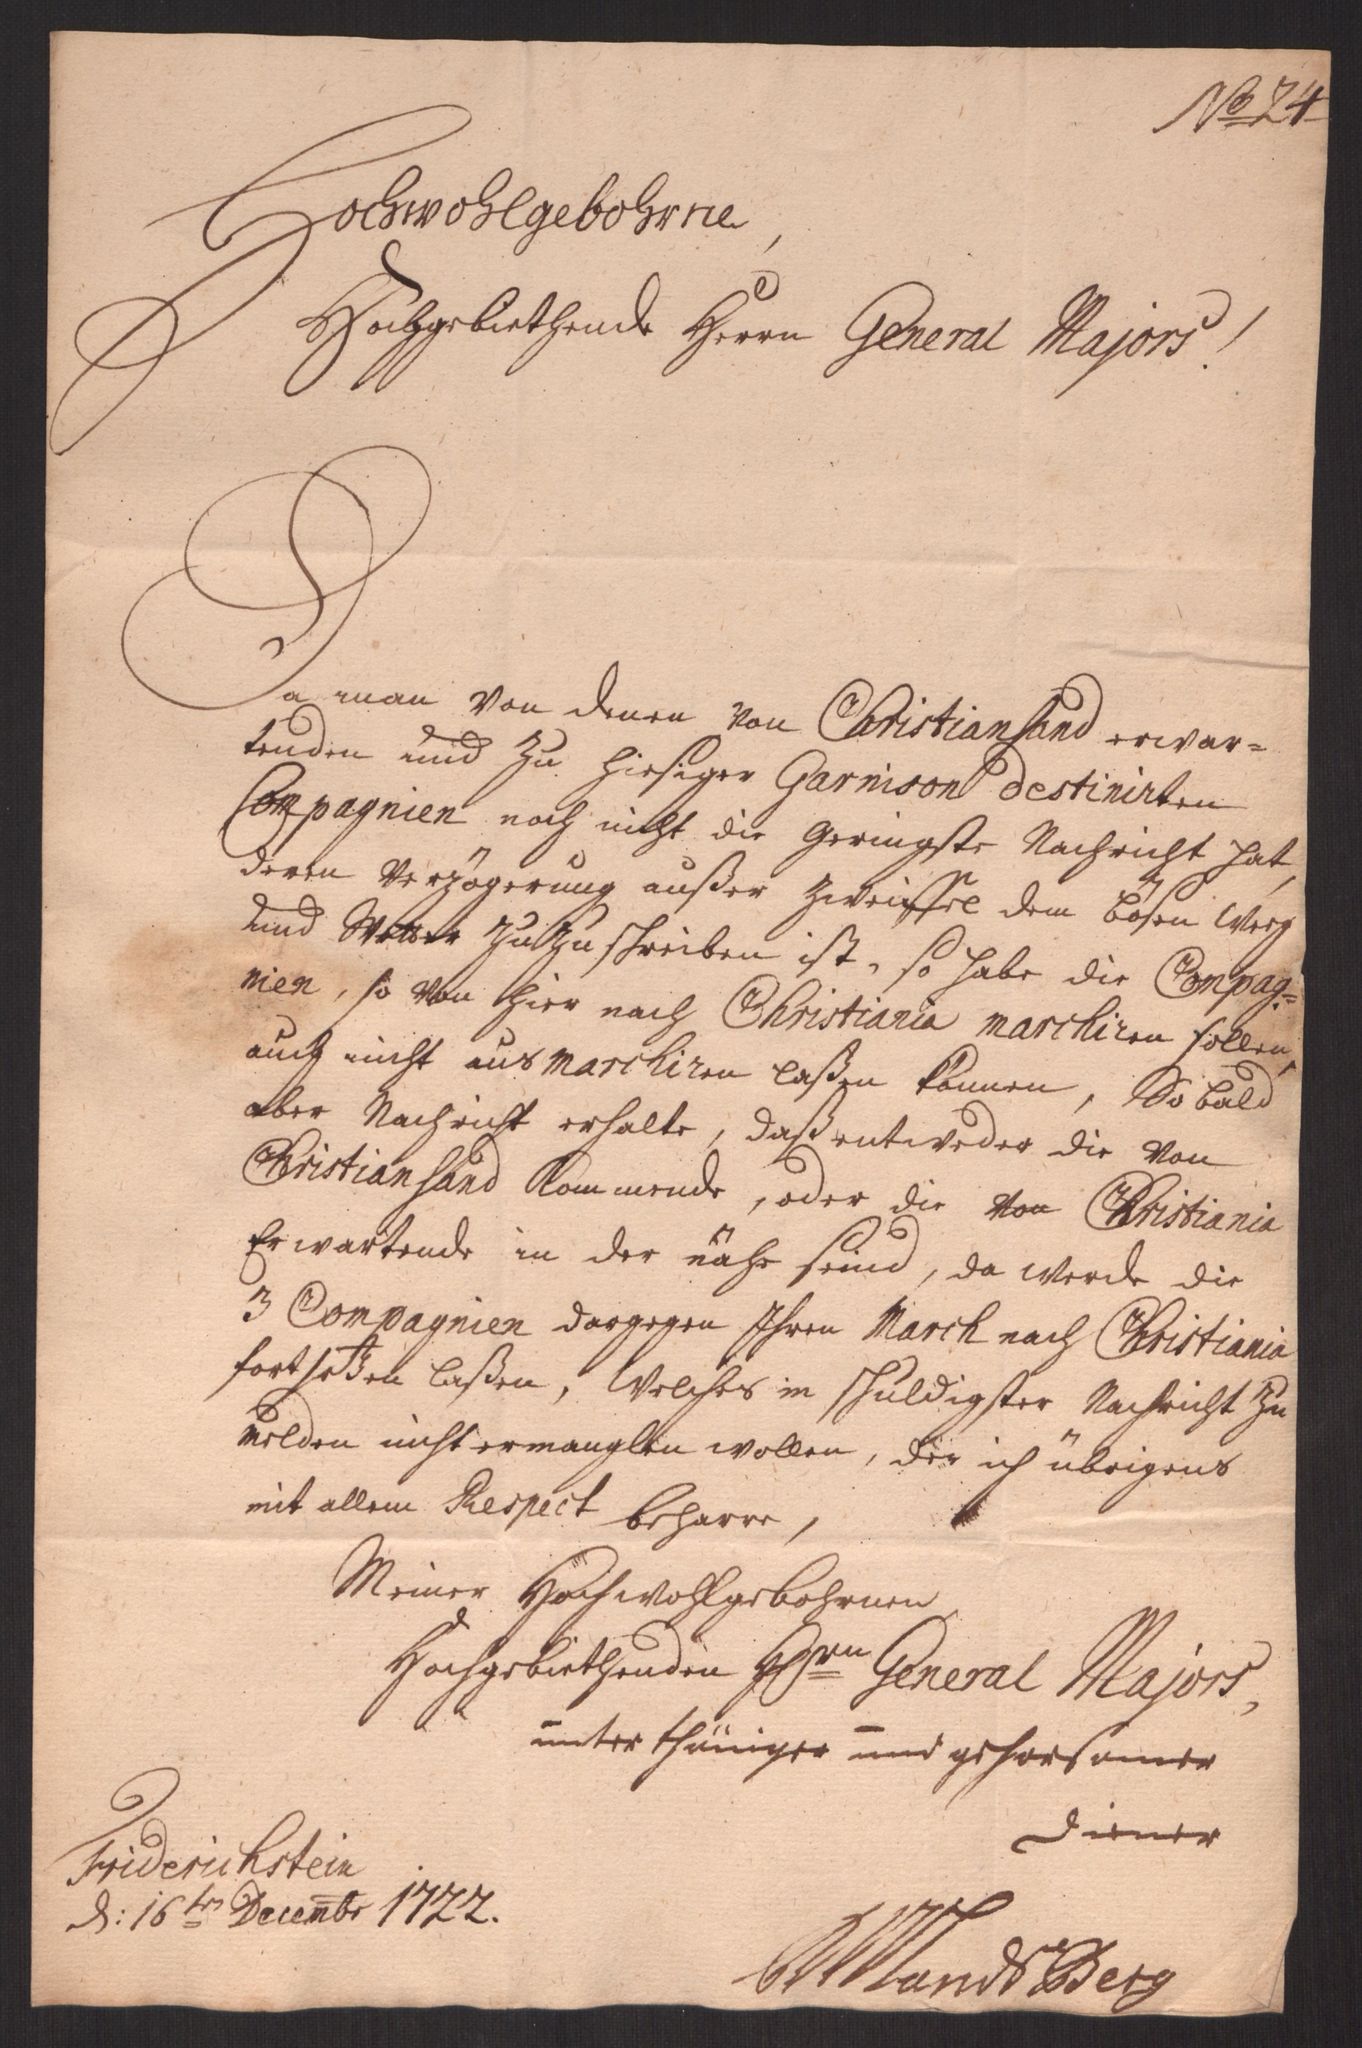 No 24
Hochwohlgebohrne,
Hochgebiethende Herrn General Majors!
Da man von denen von Christiansand erwar=
tenden und zu hiesiger Garnison destinirten
Compagnien noch nicht die geringste Nachricht hat,
deren Verzögerung außer Zweiffel dem bösen Weg
und Wetter zuzuschreiben ist, so habe die Compag=
nien, so von hier nach Christiania marchiren sollen,
auch nicht ausmarchiren laßen können, So bald
aber Nachricht erhalte, daß entweder die von
Christiansand kommende, oder die von Christiania
Erwartende in der nähe seind, da werde die
3 Compagnien dargegen Ihren March nach Christiania
fortsetzen laßen, welches in schuldigster Nachricht zu
melden nicht ermanglen wollen, der ich übrigens
mit allem Respect beharre,
Meiner Hochwohlgebohrnen
Hochgebiethenden Hrn General Majors,
unterthäniger und gehorsamer
Diener
Friderichstein
d: 16ten Decembr 1722.
Landsberg